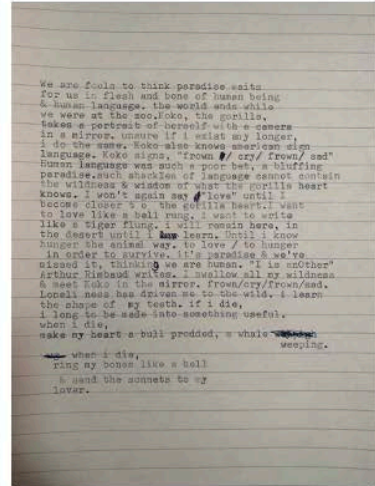 We are fools to think paradise waits
for us in flesh and bone of human being
& human language. the world ends while
we were at the zoo.Koko, the gorilla,
takes a portrait of herself with a camera
in a mirror. unsure if i exist any longer,
i do the same. Koko also knows american sign
language. Koko signs, "frown / cry/ frown/ sad"
human language was such a poor bet, a bluffing
paradise.such shackles of language cannot contain
the wildness & wisdom of what the gorilla heart
knows. I won't again say "love" until I
become closer t o the gorilla heart.I want
to love like a bell rung. i want to write
like a tiger flung. i will remain here, in
the desert until i learn. Until i know
hunger the animal way. to love / to hunger
in order to survive. it's paradise & we've
missed it, thinking we are human. "I is anOther"
Arthur Rimbaud writes. i swallow all my wildness
& meet Koko in the mirror. frown/cry/frown/sad.
Loneli ness has driven me to the wild. i learn
the shape of my teeth. if i die,
i long to be made into something useful.
when i die,
make my heart a bull prodded, a whale
weeping.
when i die,
ring my bones like a bell
& send the sonnets to my
lover.